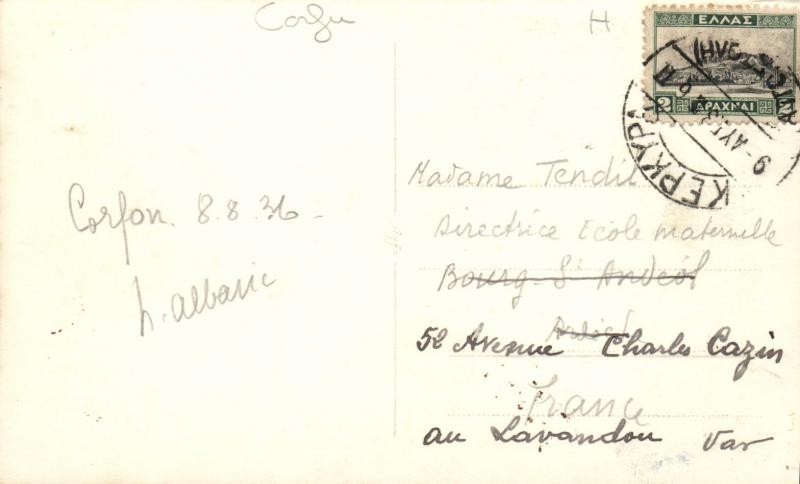 Corfu
H
ΕΛΛΑΣ
2 ΔΡΑΧΜΑΙ 2
ΚΕΡΚΥΡΑ
9 ΑΥΓ 36
Corfou. 8.8.36
Madame Tendil
Directrice Ecole maternelle
Bourg-St Andéol
Ardèche
52 Avenue Charles Cazin
France
au Lavandou Var